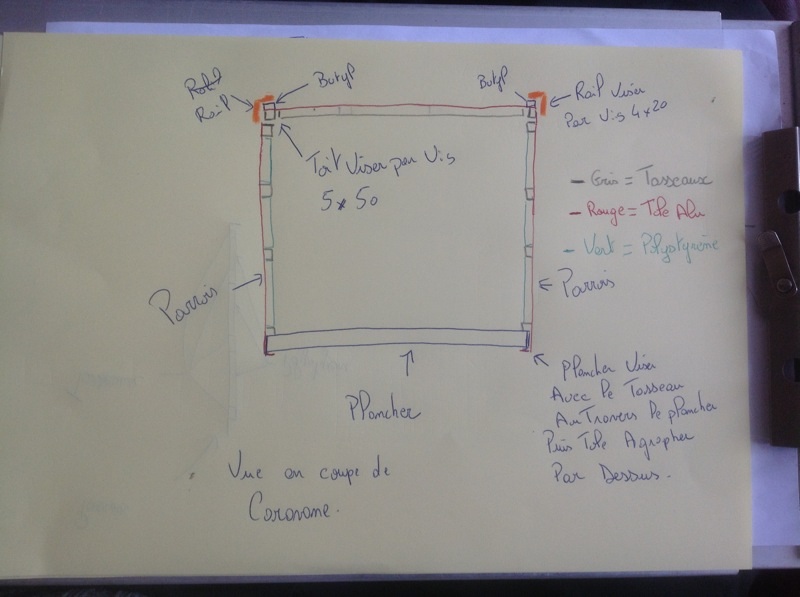 Butyl
Rail
Butyl
Rail Viser
Par Vis 4x20
Toit Viser par Vis
5x50
- Gris = Tasseaux
- Rouge = Tole Alu
- Vert = Polystyrène
Parrois
Parrois
Plancher
Plancher Viser
Avec le Tasseau
Au Travers le plancher
Puis Tole Agrapher
Par Dessus.
Vue en coupe de
Caravane.